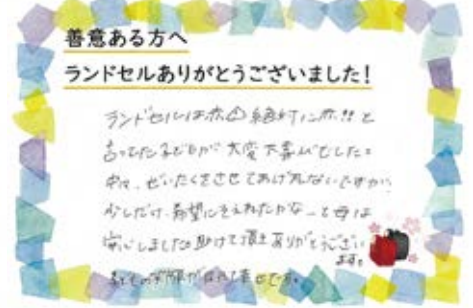 善意ある方へ
ランドセルありがとうございました!
ランドセルは赤 絶対に赤!! と
言ってた子どもが 大変大喜びでした
中々、ぜいたくをさせてあげれないですが、
少しだけ、希望にそえれたかな… と母は
安心しました 助けて頂き ありがとうござい
ます。
子どもの が 幸せです。